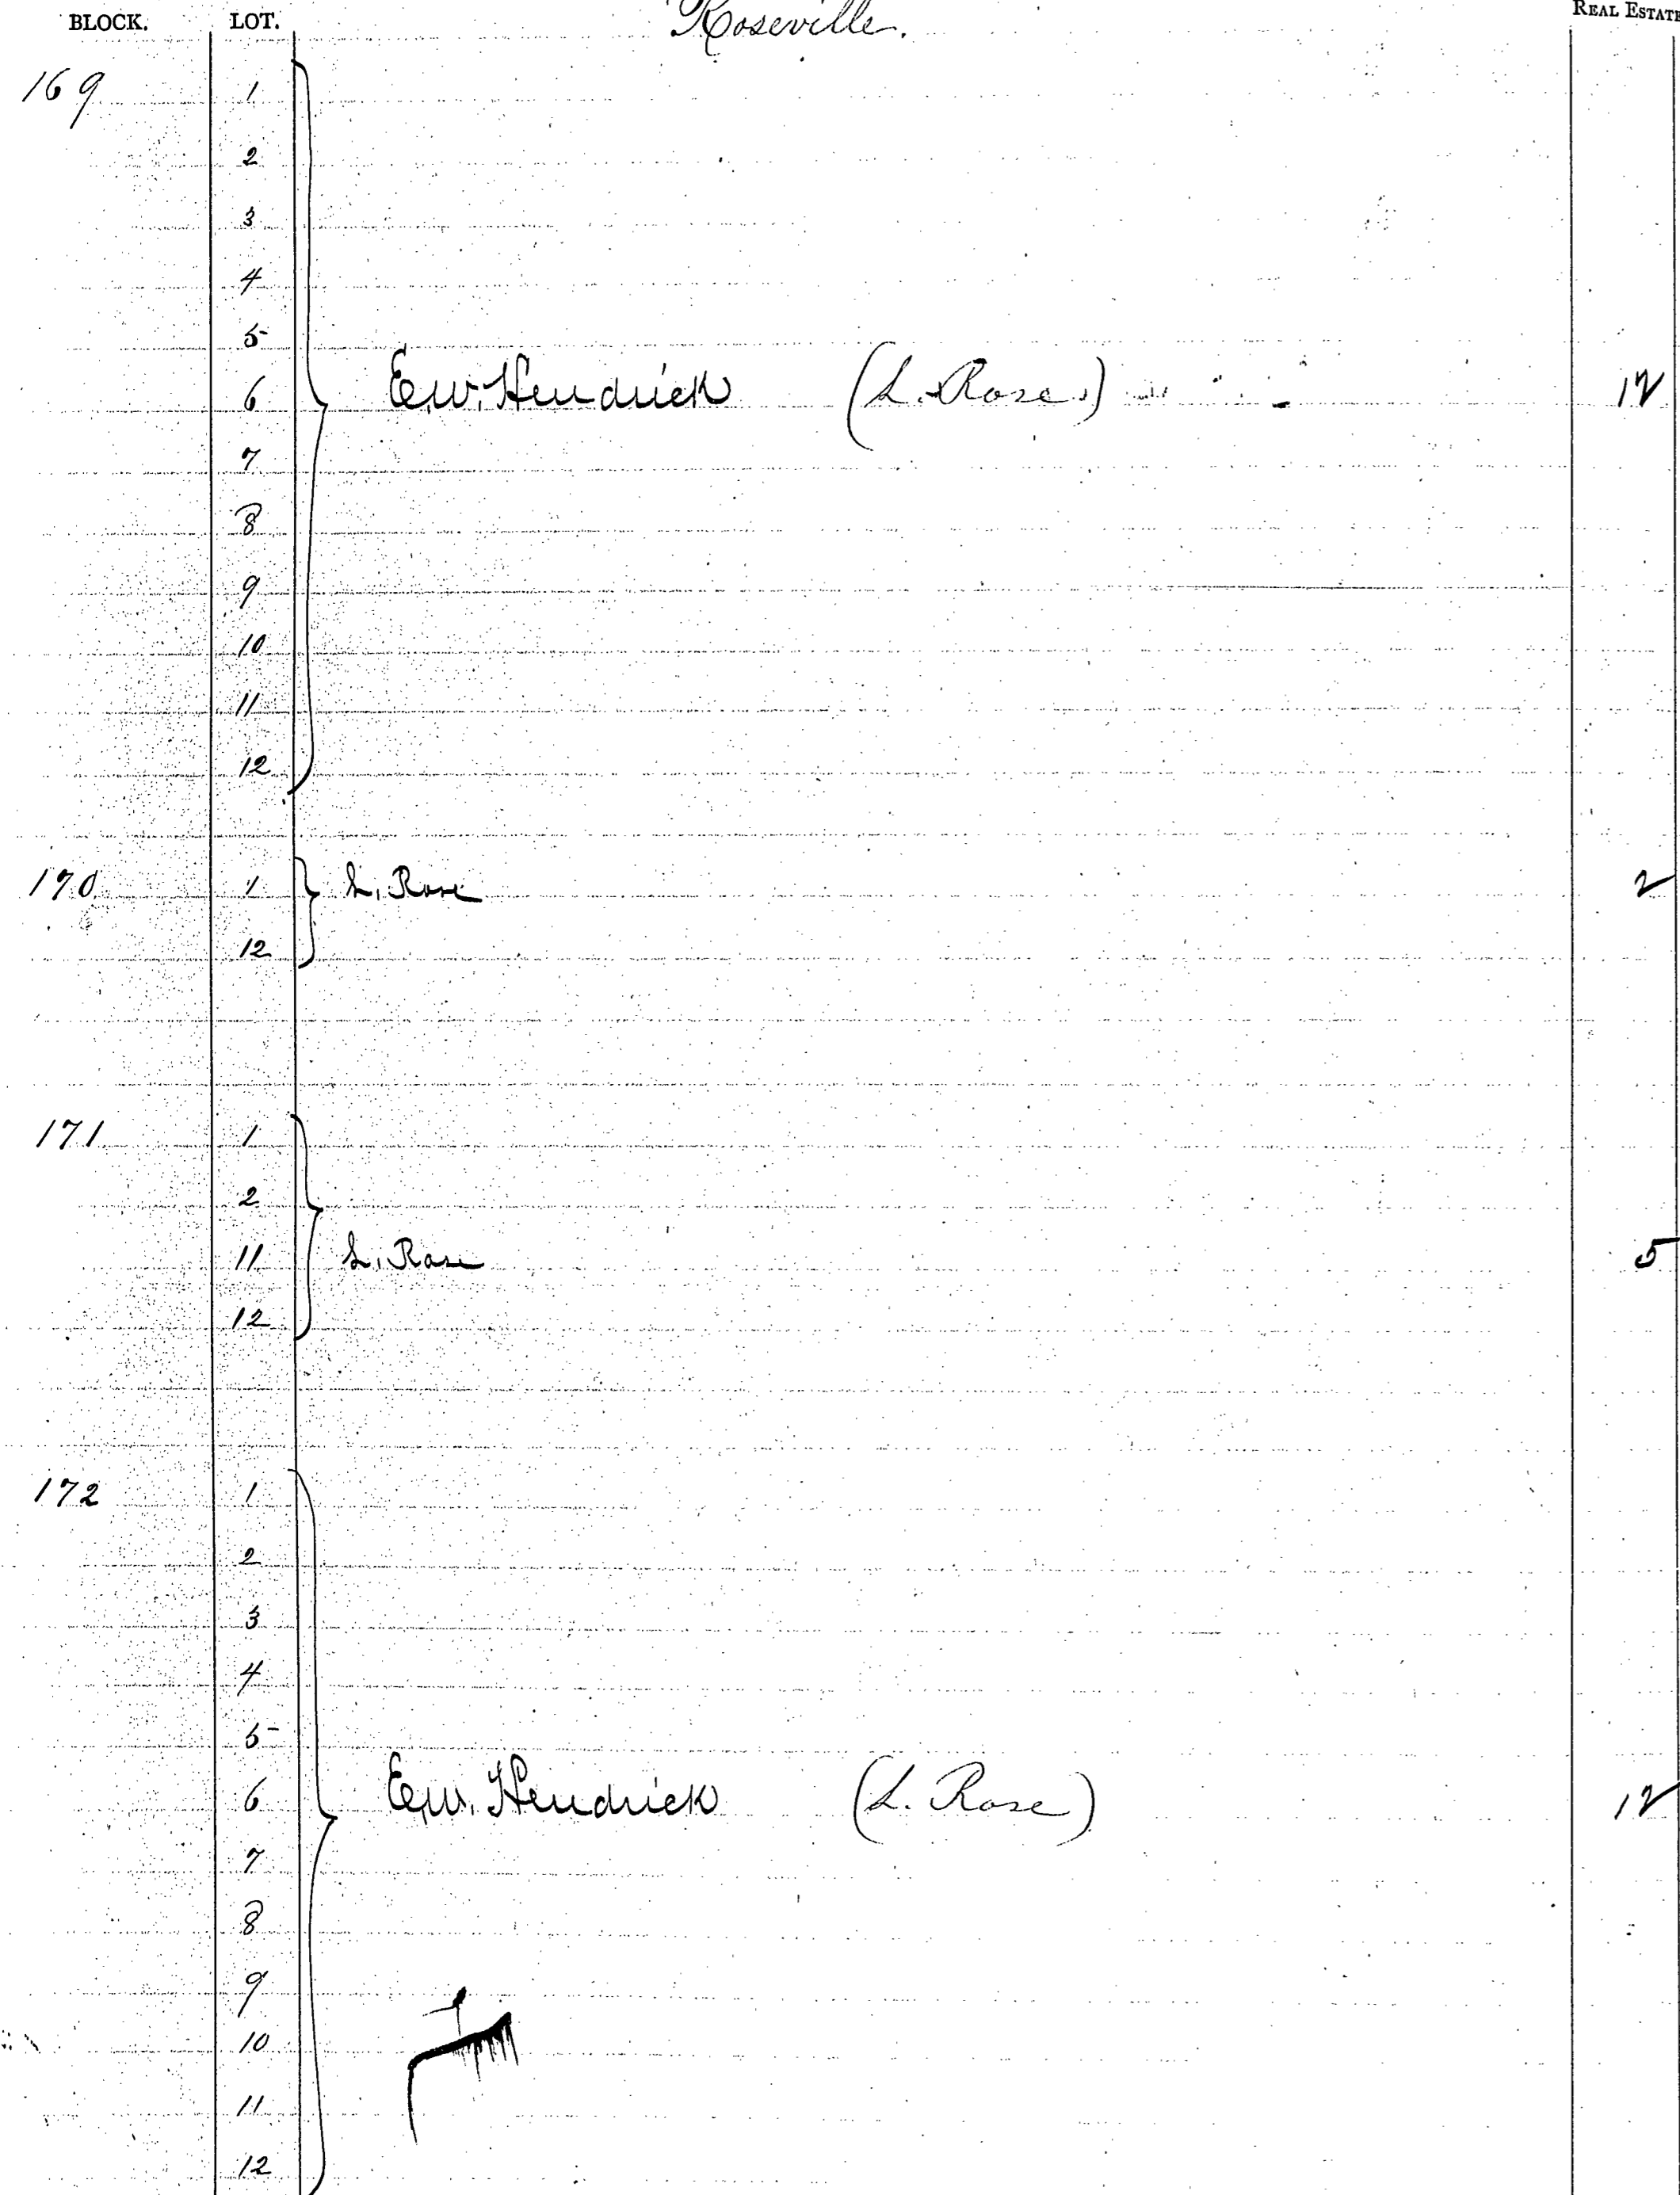 BLOCK. LOT. Roseville. REAL ESTATE
169 1
2
3
4
5
6 E.W. Hendrick (L. Rose.) 12
7
8
9
10
11
12
170 1 L. Rose 2
12
171 1
2
11 L. Rose 5
12
172 1
2
3
4
5
6 E.W. Hendrick (L. Rose) 12
7
8
9
10
11
12